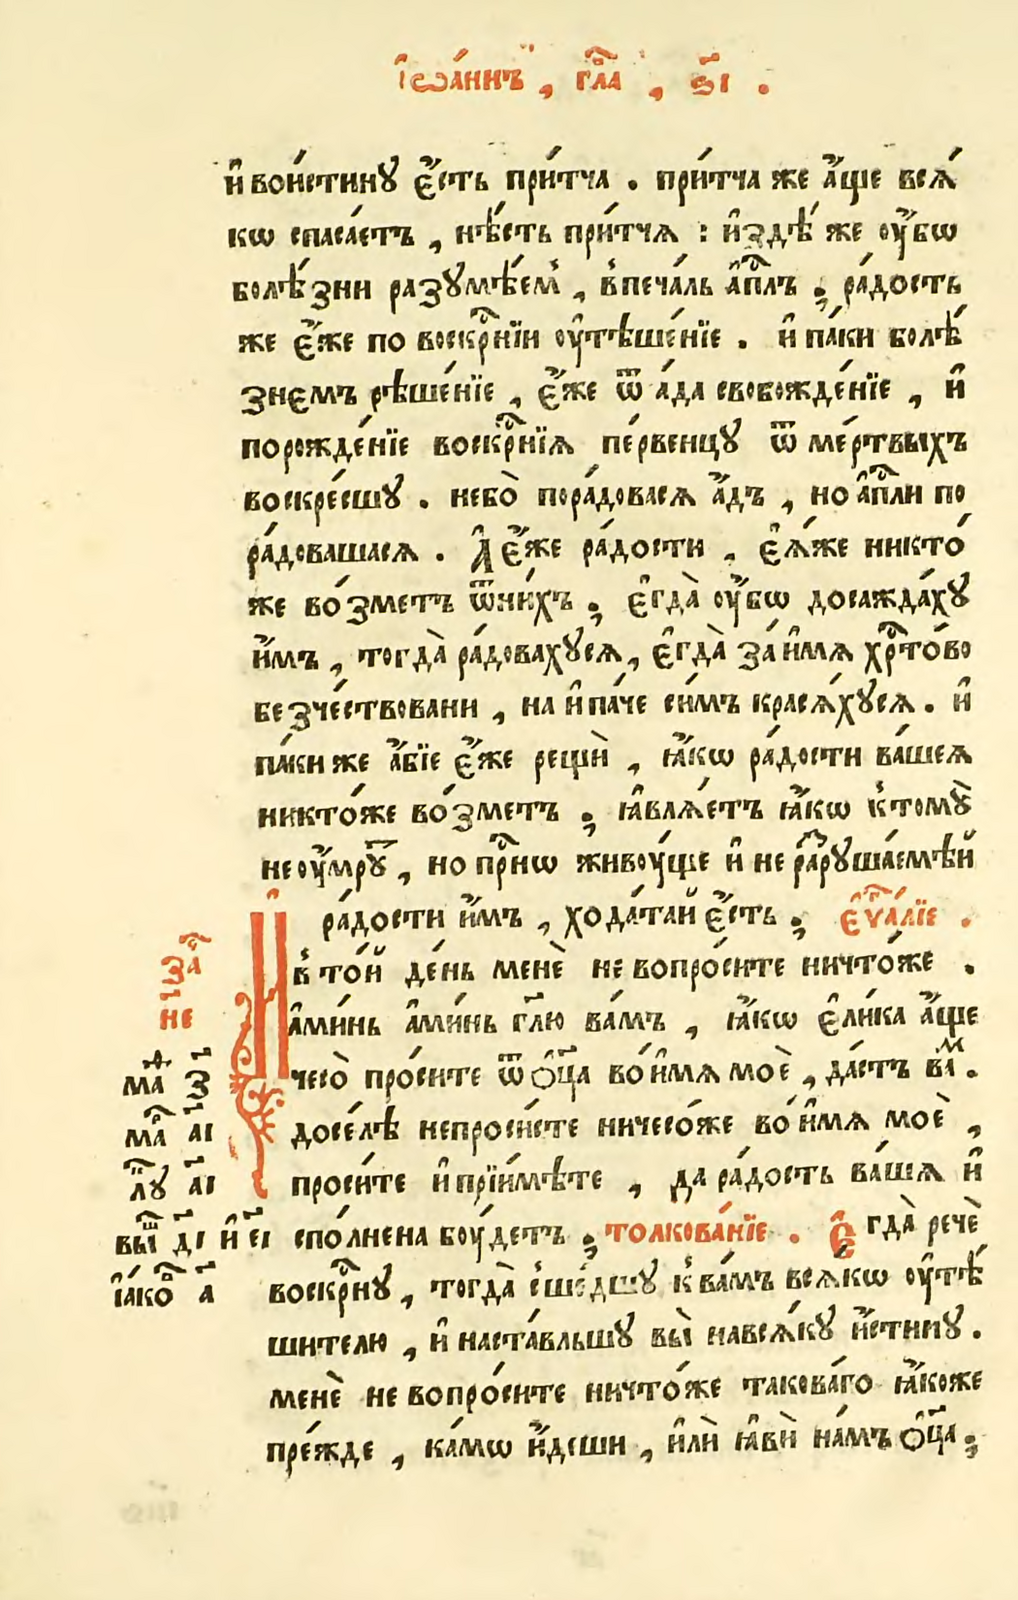 І҆ѡа́ннъ , гл҃а , ѕ҃і .
и҆ вои́стину є҆́сть при́тча . при́тча же а҆́ще вся́
кѡ спаса́етъ , нѣ́сть при́тчѧ : и҆здѣ́ же ᲂу҆́бѡ
болѣ́зни разумѣ́ем̾ , в̾печа́ль а҆п҃лъ ; ра́дость
же є҆́же по воскр҃нїи ᲂу҆тѣше́нїе . и҆ па́ки болѣ́
знемъ рѣше́нїе , є҆́же ѿ а́да свобожде́нїе , и҆
порожде́нїе воскр҃нїѧ пе́рвенцу ѿ ме́ртвыхъ
воскре́сшу . небо̀ пора́довасѧ а҆́дъ , но а҆п҃ли по
ра́довашасѧ . А҆ є҆́же ра́дости , є҆ѧ́же никто́
же во́зметъ ѿни́хъ ; є҆гда̀ ᲂу҆́бѡ досажда́ху
и҆̀мъ , тогда̀ ра́довахусѧ , є҆гда̀ за и҆́мѧ хр҃то́во
безче́ствовани , на и҆ па́че си́мъ красѧ́хусѧ . и҆
па́ки же а҆́бїе є҆́же рещѝ , ꙗ҆́кѡ ра́дости ва́шеѧ
никто́же во́зметъ ; ꙗ҆влѧ́етъ ꙗ҆́кѡ к̾томꙋ̀
не ᲂу҆́мрꙋ , но пр҃нѡ живоу́ще и҆ не раꙁруша́емѣй
ра́дости и҆̀мъ , хода́тай є҆́сть ; є҆ѵ҃а́лїе .
В̾ то́й де́нь менѐ не вопро́сите ничто́же .
а҆ми́нь а҆ми́нь гл҃ю ва́мъ , ꙗ҆́кѡ є҆ли́ка а҆́ще
чесо̀ про́сите ѿ ѻ҆ц҃а во и҆́мѧ моѐ , да́стъ ваⷨ .
досе́лѣ непроси́сте ничесо́же во и҆́мѧ моѐ ,
проси́те и҆ прїи́мѣте , да ра́дость ва́шѧ и҆
спо́лнена боу́детъ ; толкова́нїе . Є҆гда̀ рече̏
воскр҃ну , тогда̀ с̾ше́дшу к̾ ва́мъ всѧ́кѡ ᲂу҆тѣ́
шителю , и҆ наста́вльшу вы̀ навсѧ́ку и҆́стину .
менѐ не вопро́сите ничто́же такова́го ꙗ҆́коже
пре́жде , ка́мѡ и҆́деши , и҆лѝ ꙗ҆вѝ на́мъ ѻ҆ц҃а ;
за҃
не
маѳ з҃і
ма а҃і
лꙋ а҃і
вы́ш д҃і и҆ е҃і
і҆а́ко а҃